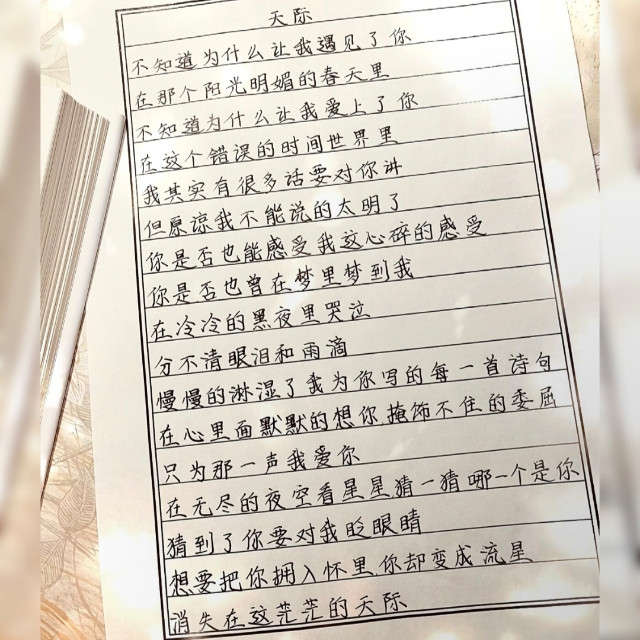 天际
不知道为什么让我遇见了你
在那个阳光明媚的春天里
不知道为什么让我爱上了你
在这个错误的时间世界里
我其实有很多话要对你讲
但原谅我不能说的太明了
你是否也能感受我这心碎的感受
你是否也曾在梦里梦到我
在冷冷的黑夜里哭泣
分不清眼泪和雨滴
慢慢的淋湿了我为你写的每一首诗句
在心里面默默的想你掩饰不住的委屈
只为那一声我爱你
在无尽的夜空看星星猜一猜哪一个是你
猜到了你要对我眨眼睛
想要把你拥入怀里你却变成流星
消失在这茫茫的天际